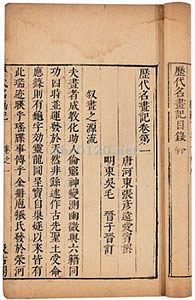 歷代名畫記目錄 終
歷代名畫記卷第一
唐河東張彥遠愛賓撰
明東吳毛晉子晉訂
叙畫之源流
夫畫者成教化助人倫窮神變測幽微與六籍同
功四時並運發於天然非繇述作古先聖王受命
應籙則有龜字効靈龍圖呈寶自巢燧以來皆有
此瑞迹暎乎瑤牒事傳乎金冊庖犧氏發於滎河